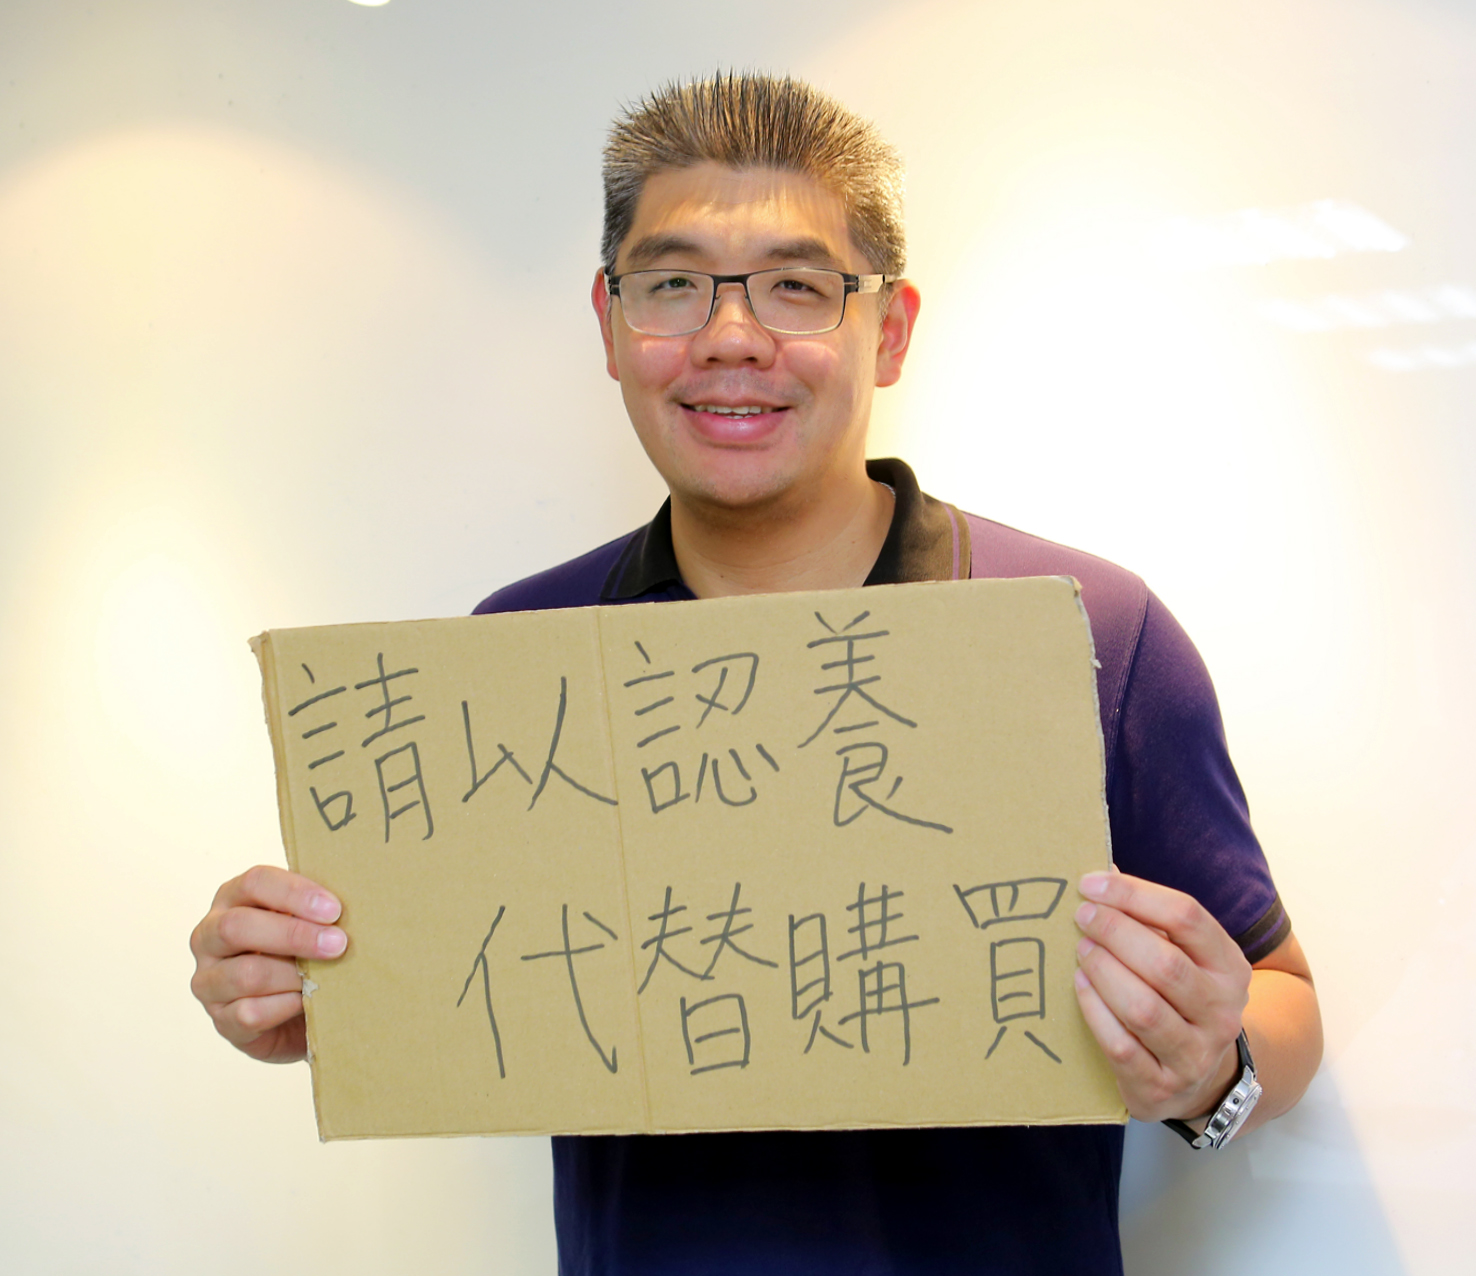 請以認養
代替購買